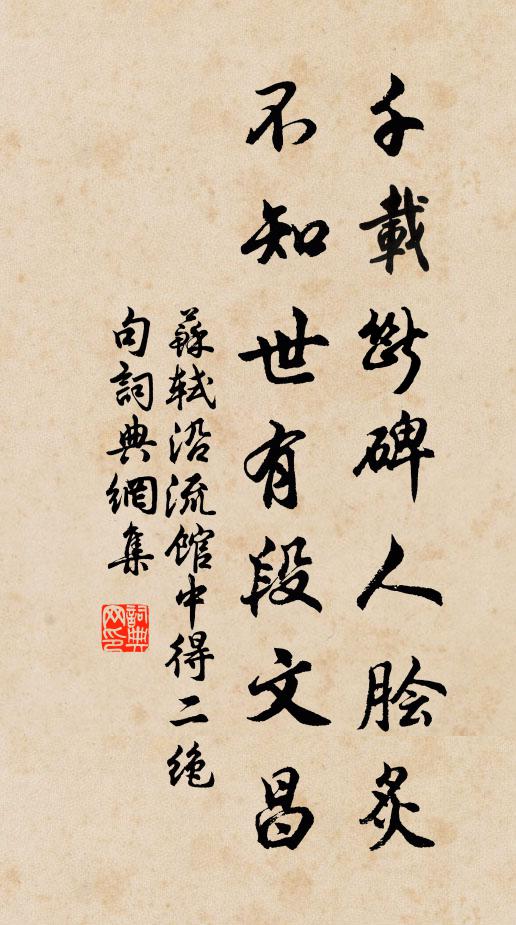 千載斷碑人膾炙
不知世有段文昌
蘇軾沿流館中得二絕
句詞典網集
詞典網印